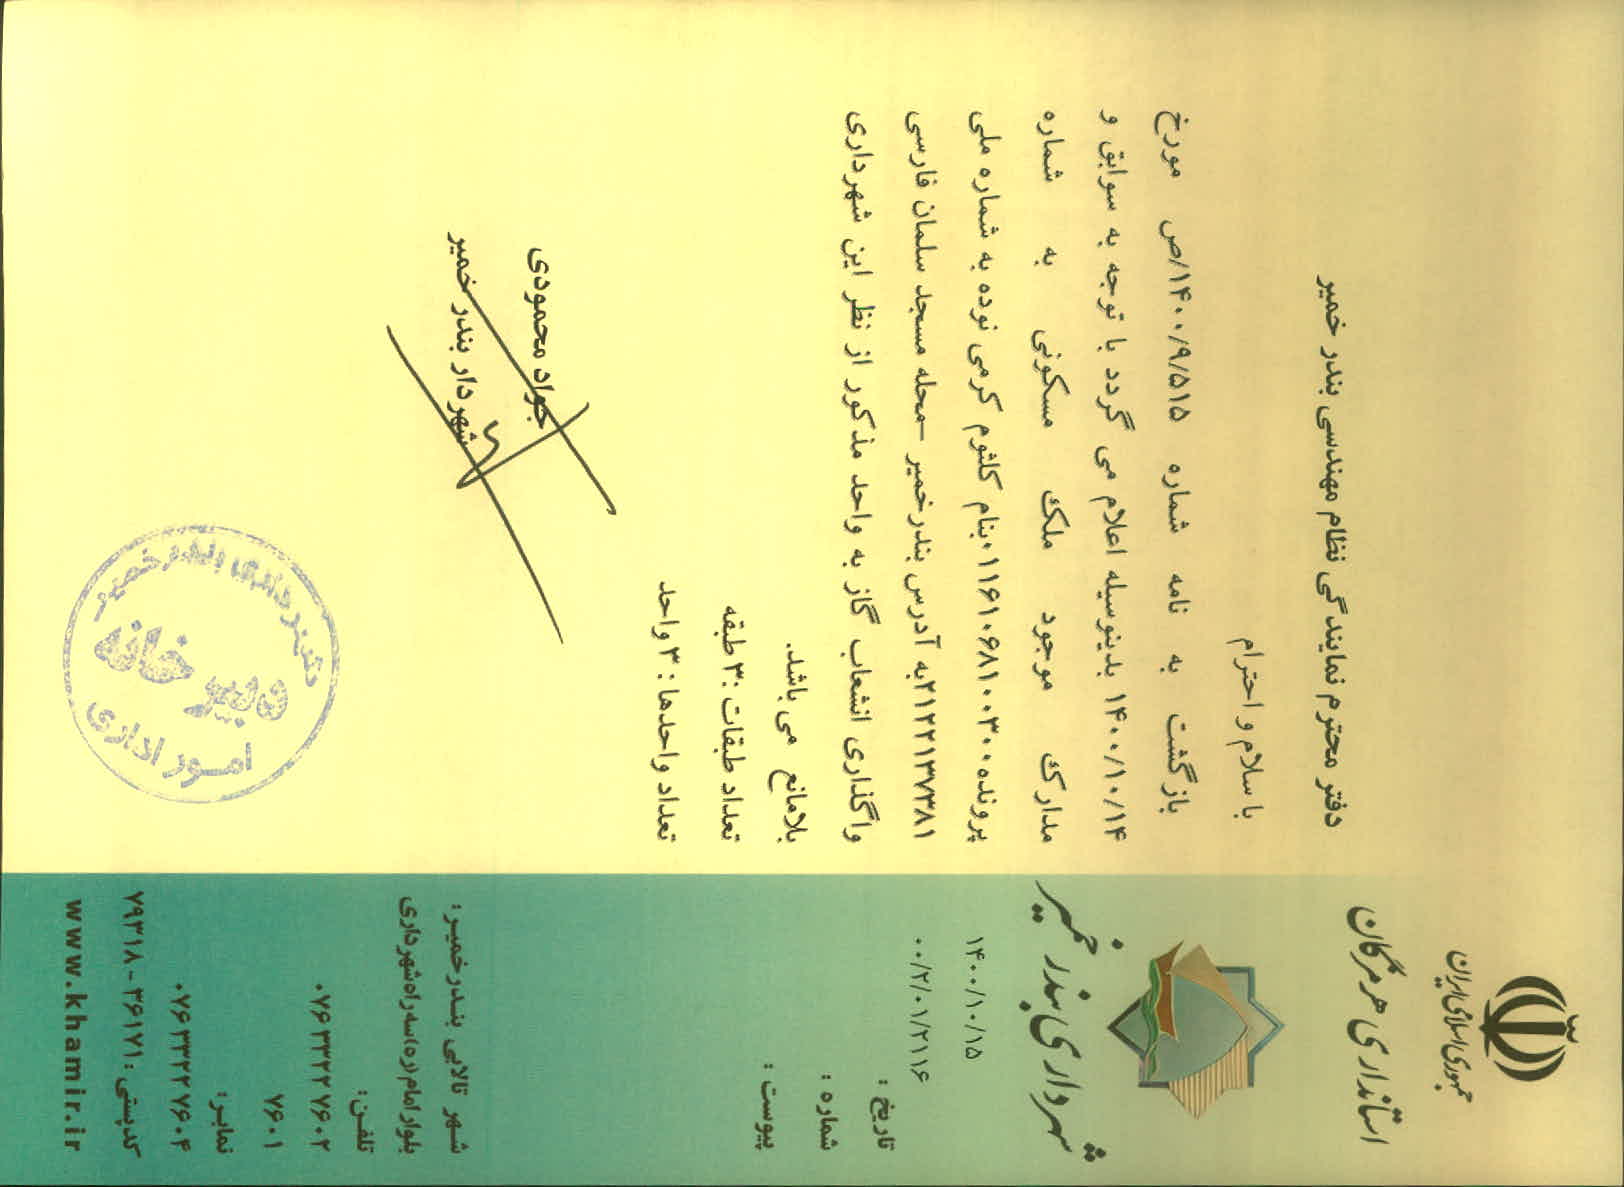 جمهوری اسلامی ایران
استانداری هرمزگان
شهرداری بندر خمیر
۱۴۰۰/۱۰/۱۵
۰۰/۲/۰۱/۲۱۱۶
تاریخ :
شماره :
پیوست :
دفتر محترم نمایندگی نظام مهندسی بندر خمیر
با سلام و احترام
بازگشت به نامه شماره ۱۴۰۰/۹/۵۱۵/ص مورخ
۱۴۰۰/۱۰/۱۴ بدینوسیله اعلام می گردد با توجه به سوابق و
مدارک موجود ملک مسکونی به شماره
پرونده۱۱۶۱۰۶۸۱۰۰۳۰۰۰بنام کلثوم کرمی نوده به شماره ملی
۲۱۲۲۱۳۷۳۸۱به آدرس بندرخمیر –محله مسجد سلمان فارسی
واگذاری انشعاب گاز به واحد مذکور از نظر این شهرداری
بلامانع می باشد.
تعداد طبقات :۳طبقه
تعداد واحدها : ۳ واحد
جواد محمودی
شهردار بندر خمیر
شهرداری بندر خمیر
دبیرخانه
امور اداری
شهر تالابی بندرخمیر :
بلوار امام(ره)سه راه شهرداری
تلفن:
۰۷۶۳۳۲۲۷۶۰۲
۷۶۰۱
نمابر:
۰۷۶۳۳۲۲۷۶۰۴
کدپستی : ۳۶۱۷۱ - ۷۹۳۱۸
www.khamir.ir